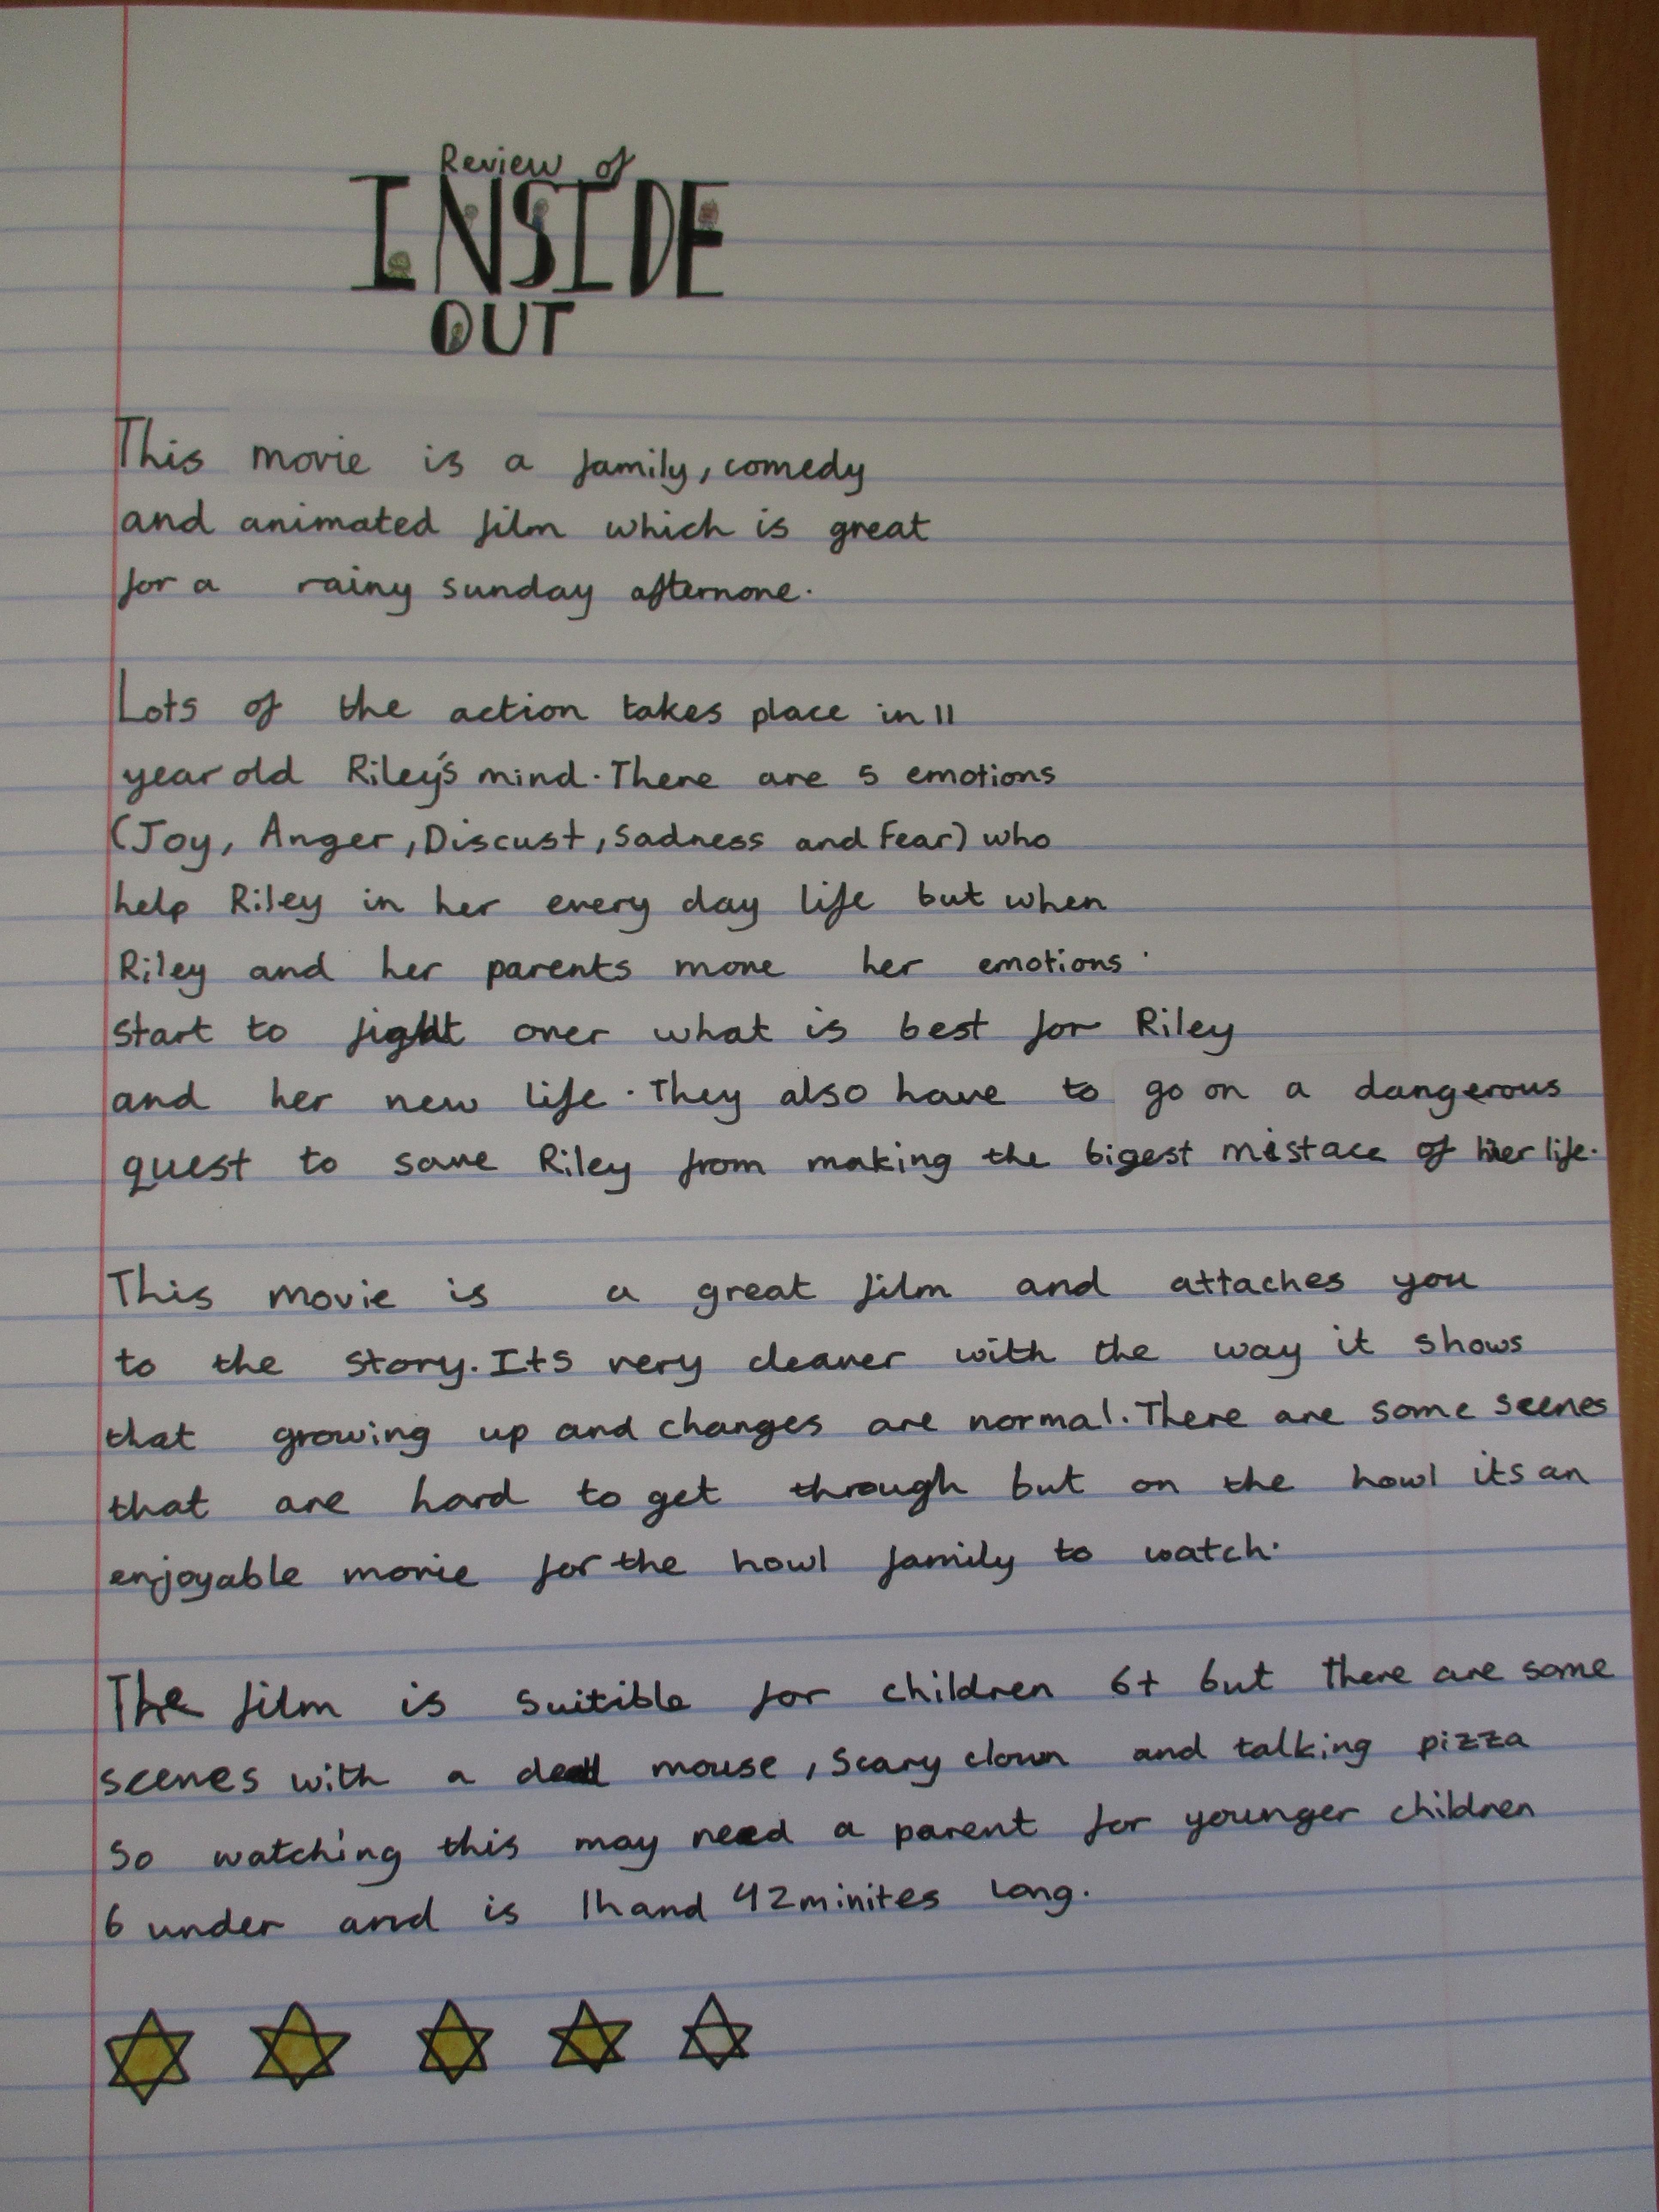 Review of
INSIDE
OUT
This movie is a family, comedy
and animated film which is great
for a rainy sunday afternone.
Lots of the action takes place in 11
year old Riley's mind. There are 5 emotions
(Joy, Anger, Discust, Sadness and Fear) who
help Riley in her every day life but when
Riley and her parents move her emotions
start to fight over what is best for Riley
and her new life. They also have to go on a dangerous
quest to save Riley from making the bigest mistace of her life.
This movie is a great film and attaches you
to the story. Its very cleaver with the way it shows
that growing up and changes are normal. There are some scenes
that are hard to get through but on the howl its an
enjoyable movie for the howl family to watch.
The film is suitible for children 6+ but there are some
scenes with a dead mouse, scary clown and talking pizza
so watching this may need a parent for younger children
6 under and is 1h and 42 minites long.